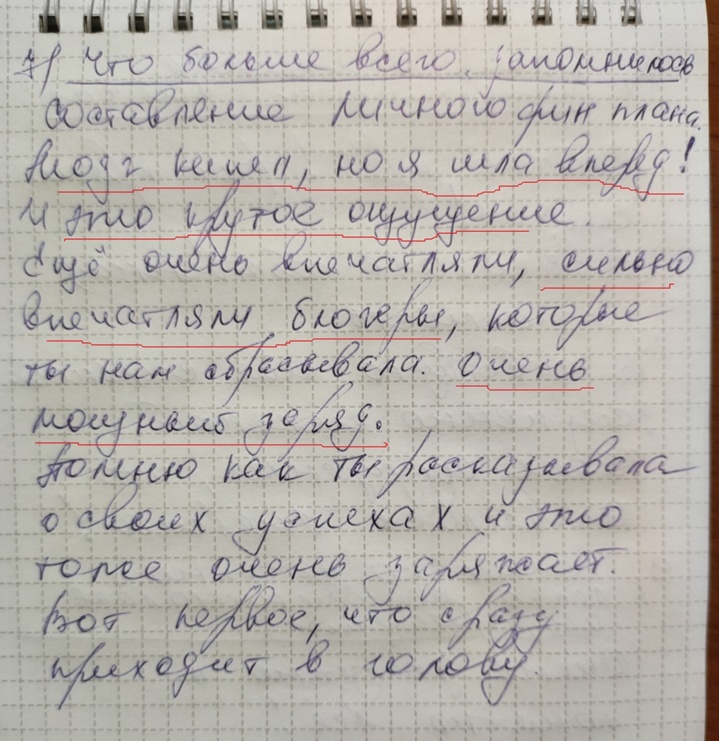 7) Что больше всего запомнилось
Составление личного фин плана.
Мозг кипел, но я шла вперед!
И это крутое ощущение.
Ещё очень впечатляли, сильно
впечатляли блогеры, которые
ты нам сбрасывала. Очень
мощный заряд.
Помню как ты рассказывала
о своих успехах и это
тоже очень заряжает.
Вот первое, что сразу
приходит в голову.